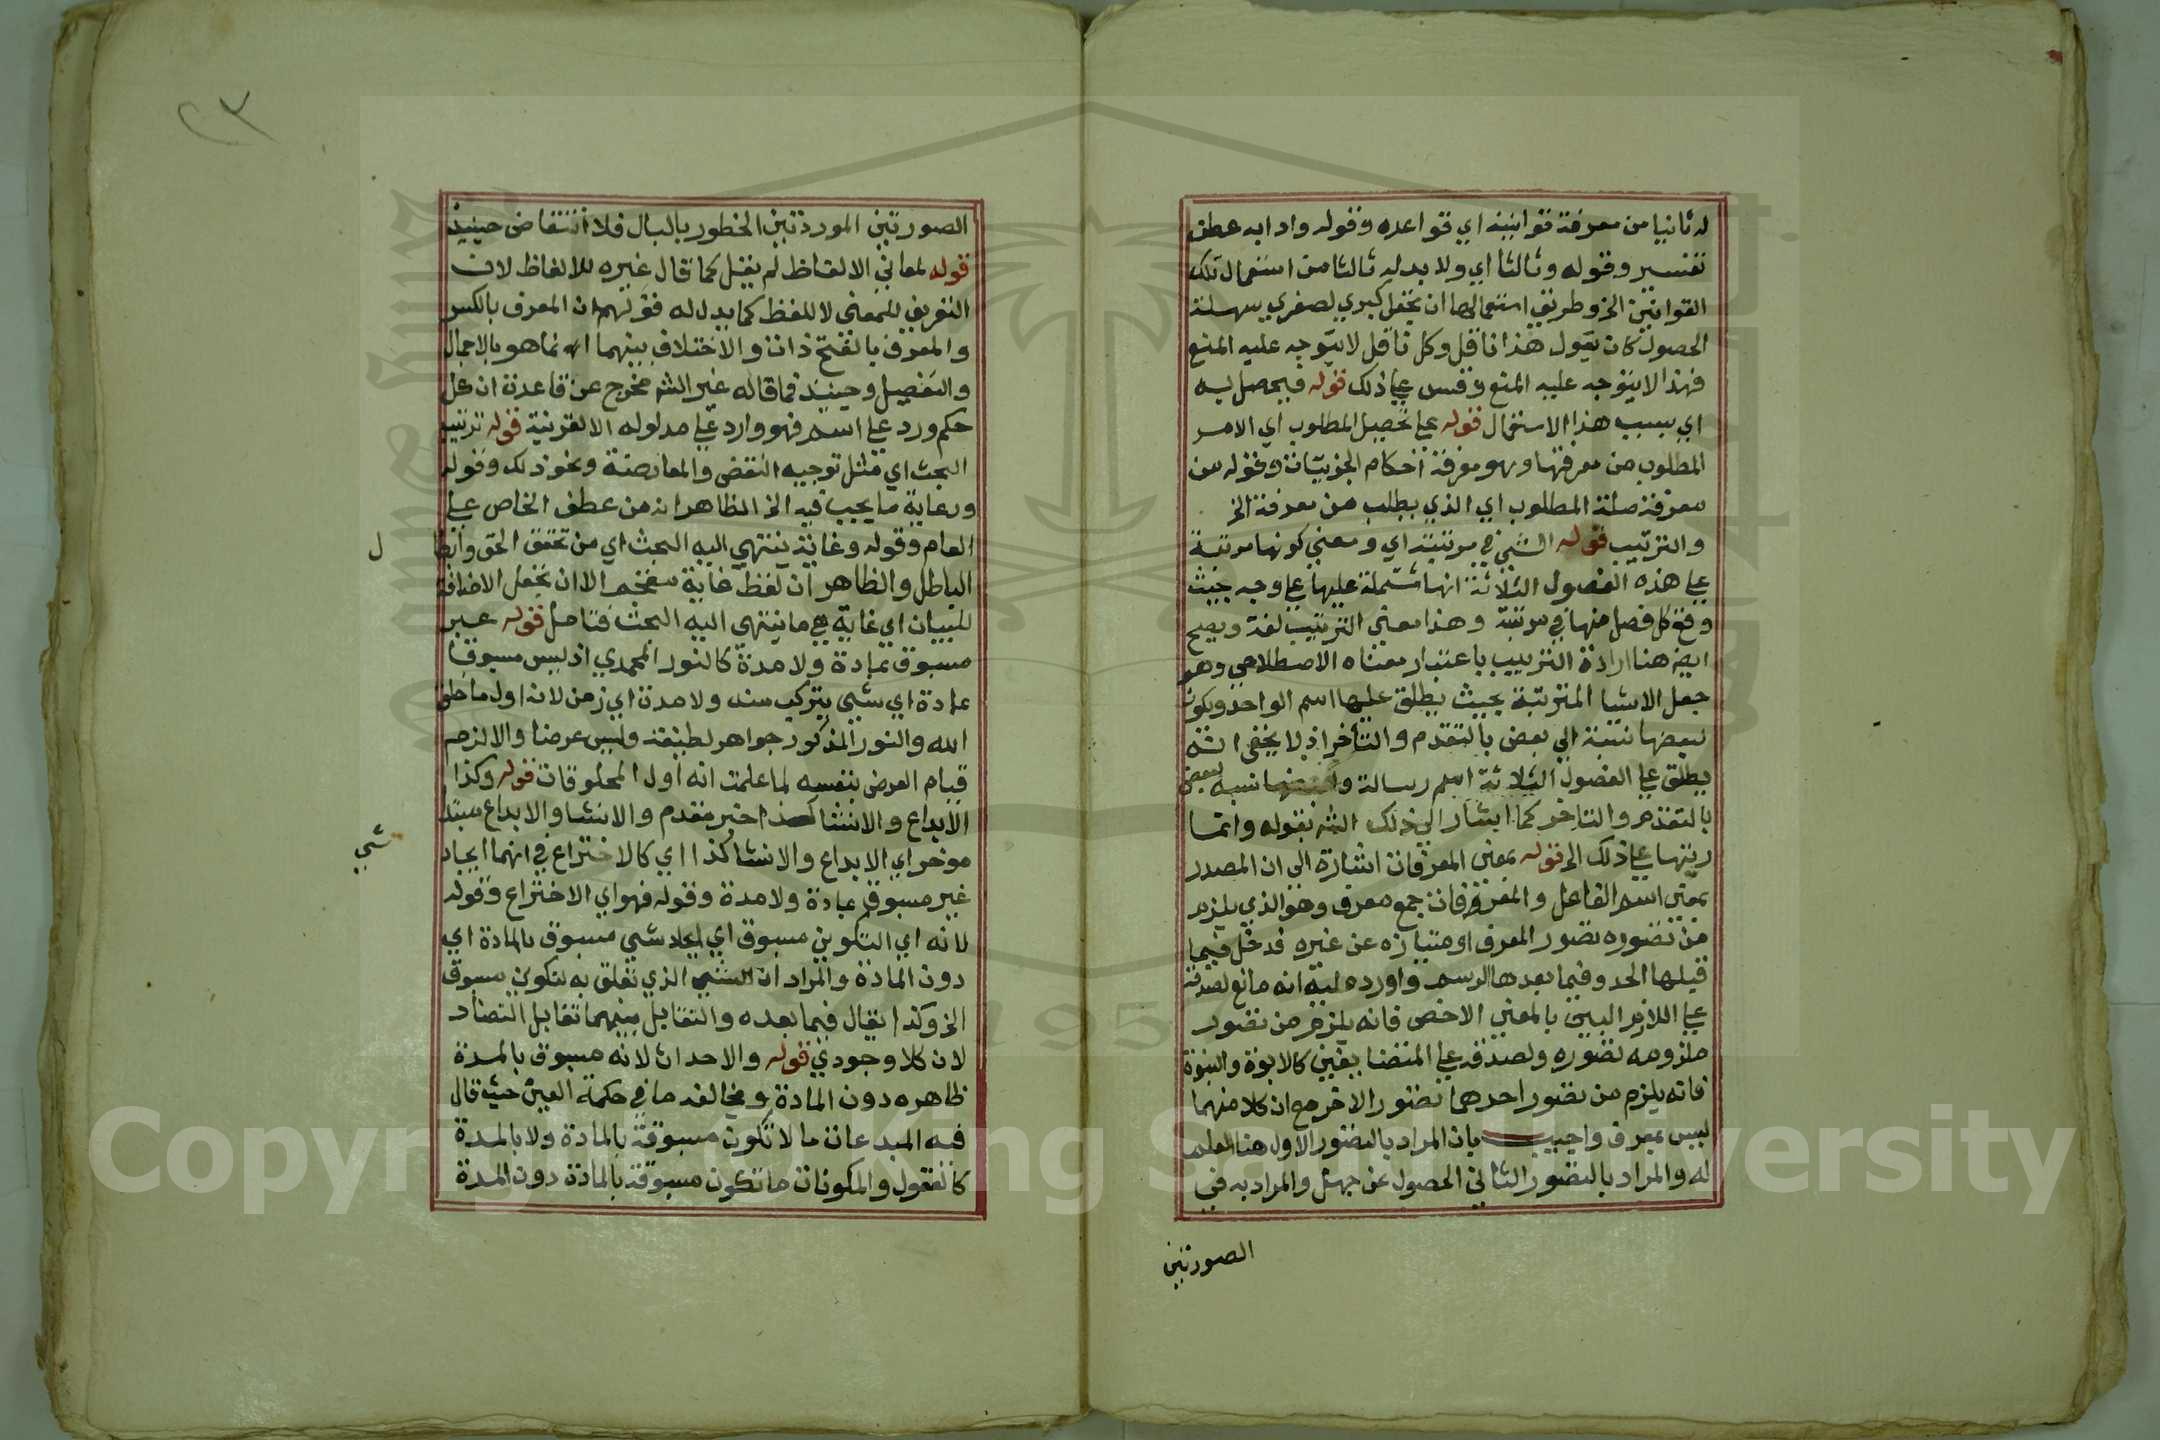 له ثانيا من معرفة قوانينه اي قواعده وقوله وادابه عطف
تفسير وقوله وثالثا اي ولا بد له ثالثا من استعمال تلك
القوانين الخ وطريق استعمالها ان تجعل كبري لصغري سهلة
الحصول كان تقول هذا ناقل وكل ناقل لا يتوجه عليه المنع
فهذا لا يتوجه عليه المنع وقس علي ذلك قوله فيحصل له
اي بسبب هذا الاستعمال قوله علي تحصيل المطلوب اي الامر
المطلوب من معرفتها وهو معرفة احكام الجزيئات وقوله من
معرفة صلة المطلوب اي الذي يطلب من معرفة الخ
والترتيب قوله الشي في مرتبته اي ومعني كونها مرتبة
علي هذه الفصول الثلاثة انها مشتملة عليها علي وجه حيث
وقع كل فصل منها في مرتبته وهذا معني الترتيب لغة ويصح
ايضا هنا ارادة الترتيب باعتبار معناه الاصطلاحي وهو
جعل الاشيا المترتبة بحيث يطلق عليها اسم الواحد ويكون
لبعضها نسبة الي بعض بالتقدم والتأخر اذ لا يخفى انه
يطلق علي الفصول الثلاثة اسم رسالة ولبعضها نسبه لبعض
بالتقدم والتاخر كما اشار الي ذلك الشه بقوله وانما
رتبها علي ذلك الخ قوله بمعنى المعرفات اشارة الى ان المصدر
بمعني اسم الفاعل والمعرفات جمع معرف وهو الذي يلزم
من تصوره تصور المعرف او امتيازه عن غيره فدخل فيما
قبلها الحد وفيما بعدها الرسم واورد عليه انه مانع لصدقه
علي اللازم البين بالمعني الاخص فانه يلزم من تصور
ملزومه تصوره ولصدقه علي المتضايفين كالابوة والبنوة
فانه يلزم من تصور احدهما تصور الاخر مع ان كلا منهما
ليس بمعرف واجيب بان المراد بالتصور الاول هنا العلم
له والمراد بالتصور الثاني الحصول عن جهل والمراد به في
الصورتين
٢٣
الصورتين الموردتين الخطور بالبال فلا انتقاض حينيذ
قوله لمعاني الالفاظ لم يقل كما قال غيره للالفاظ لان
التعريف للمعني لا للفظ كما يدل له قولهم ان المعرف بالكسر
والمعرف بالفتح ذات والاختلاف بينهما انما هو بالاجمال
والتفصيل وحينيذ فما قاله غير الشه مخرج عن قاعدة ان كل
حكم ورد علي اسم فهو وارد علي مدلوله الا لقرينة قوله ترتيب
البحث اي مثل توجيه النقض والمعارضة ونحو ذلك وقوله
ورعاية ما يجب فيه الخ الظاهر انه من عطف الخاص علي
العام وقوله وغاية ينتهي اليه البحث اي من تحقق الحق وابطا
ل
الباطل والظاهر ان لفظ غاية مقحم الا ان تجعل الاضافة
للبيان اي غاية هي ما ينتهي اليه البحث فتامل قوله غير
مسبوق بمادة ولا مدة كالنور المحمدي اذ ليس مسبوقا
بمادة اي شيي يتركب منه ولا مدة اي زمن لانه اول ما خلق
الله والنور المذكور جواهر لطيفة وليس عرضا والا لزم
قيام العرض بنفسه لما علمت انه اول المخلوقات قوله وكذا
الابداع والانشا كذا خبر مقدم والانشا والابداع مبتدا
موخر اي الابداع والانشا كذا اي كالاختراع في انهما ايجاد
شيي
غير مسبوق بمادة ولا مدة وقوله فهو اي الاختراع وقوله
لانه اي التكوين مسبوق اي ايجاد شيي مسبوق بالمادة اي
دون المادة والمراد ان الشيي الذي تعلق به تكوين مسبوق
الخ وكذا يقال فيما بعده والتقابل بينهما تقابل التضاد
لان كلا وجودي قوله والاحداث لانه مسبوق بالمدة
ظاهره دون المادة ويخالفه ما في حكمة العين حيث قال
فيه المبدعات ما لا تكون مسبوقة بالمادة ولا بالمدة
كالعقول والمكونات ما تكون مسبوقة بالمادة دون المدة